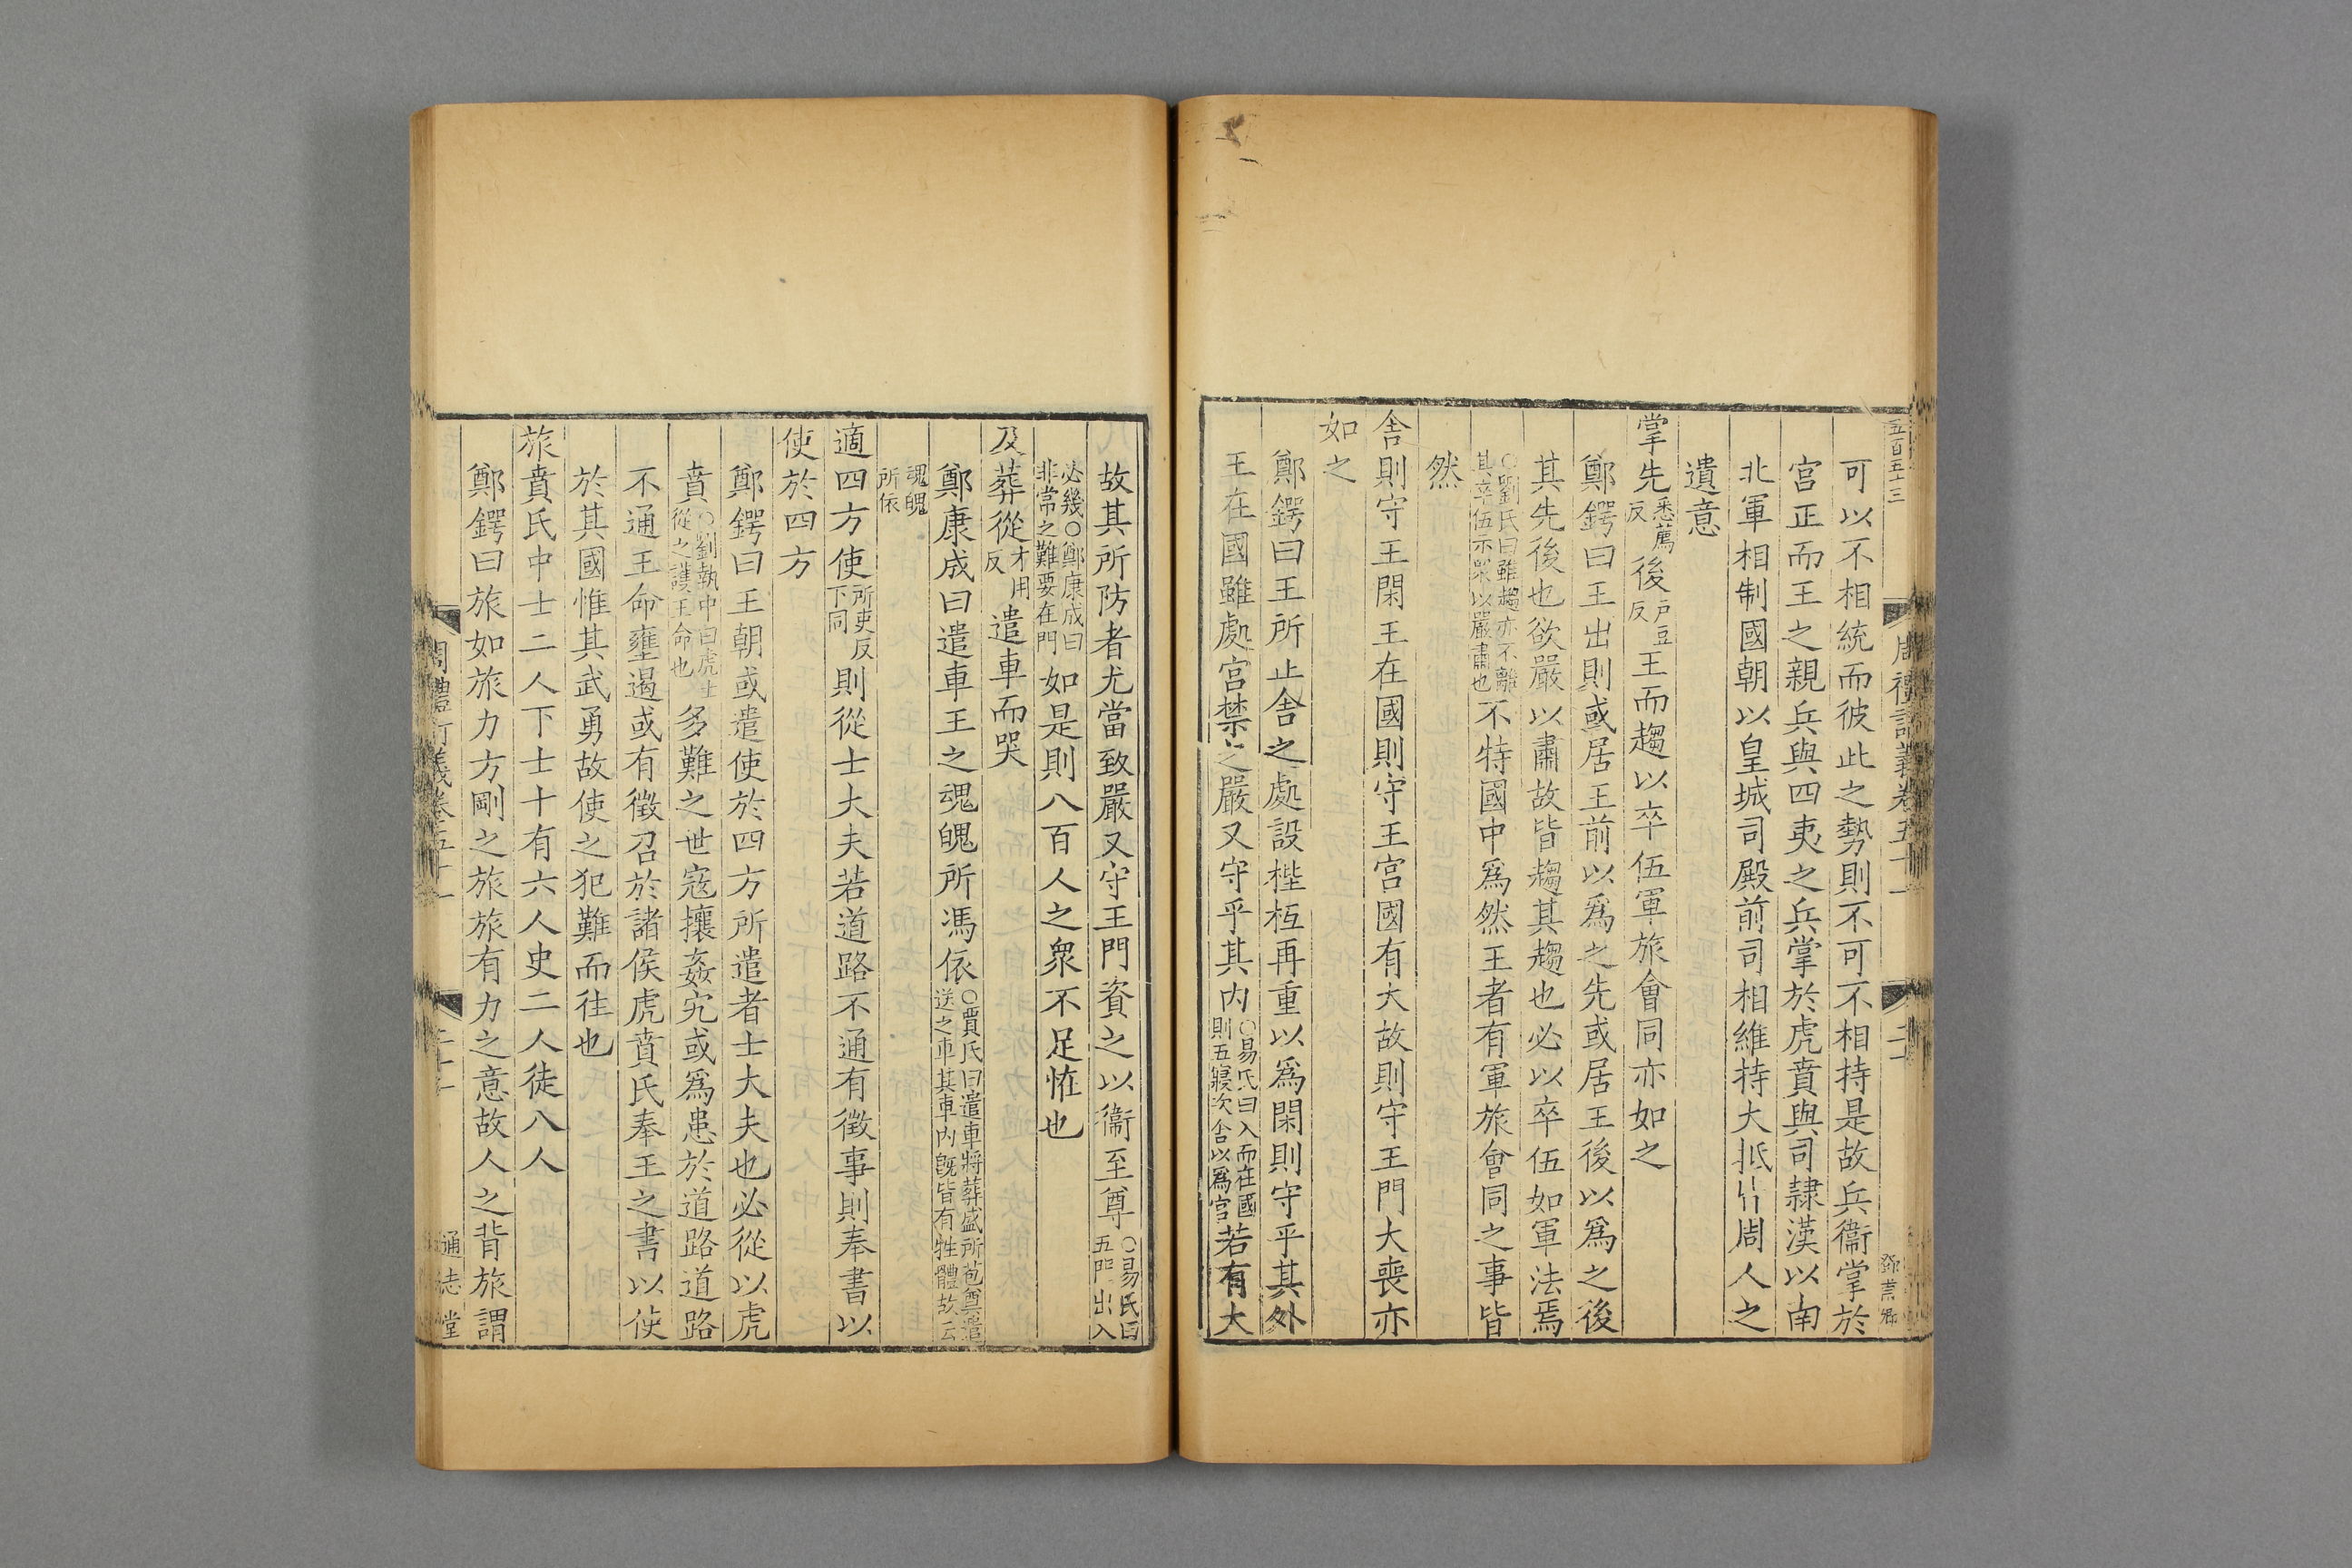 五百五十三
周禮訂義卷五十一
二十
鄧蒿卿
可以不相統而彼此之勢則不可不相持是故兵衞掌於
宫正而王之親兵與四夷之兵掌於虎賁與司隷漢以南
北軍相制國朝以皇城司殿前司相維持大抵皆周人之
遺意
掌先悉薦反後戶豆反王而趨以卒伍軍旅會同亦如之
鄭鍔曰王出則或居王前以爲之先或居王後以爲之後
其先後也欲嚴以肅故皆趨其趨也必以卒伍如軍法焉
○劉氏曰雖趨亦不離其卒伍示眾以嚴肅也不特國中爲然王者有軍旅會同之事皆
然
舍則守王閑王在國則守王宫國有大故則守王門大喪亦
如之
鄭鍔曰王所止舍之處設梐枑再重以爲閑則守乎其外
王在國雖處宫禁之嚴又守乎其内○易氏曰入而在國則五寢次舍以爲宫若有大
故其所防者尤當致嚴又守王門資之以衞至尊○易氏曰五門出入
必幾○鄭康成曰非常之難要在門如是則八百人之衆不足恠也
及葬從才用反遣車而哭
鄭康成曰遣車王之魂魄所馮依○賈氏曰遣車將葬盛所苞奠遣送之車其車内旣皆有牲體故云
魂魄所依
適四方使所吏反下同則從士大夫若道路不通有徵事則奉書以
使於四方
鄭鍔曰王朝或遣使於四方所遣者士大夫也必從以虎
賁○劉執中曰虎士從之護王命也多難之世寇攘姦宄或爲患於道路道路
不通王命壅遏或有徵召於諸侯虎賁氏奉王之書以使
於其國惟其武勇故使之犯難而往也
旅賁氏中士二人下士十有六人史二人徒八人
鄭鍔曰旅如旅力方剛之旅旅有力之意故人之背旅謂
周禮訂義卷五十一
二十一
通志堂